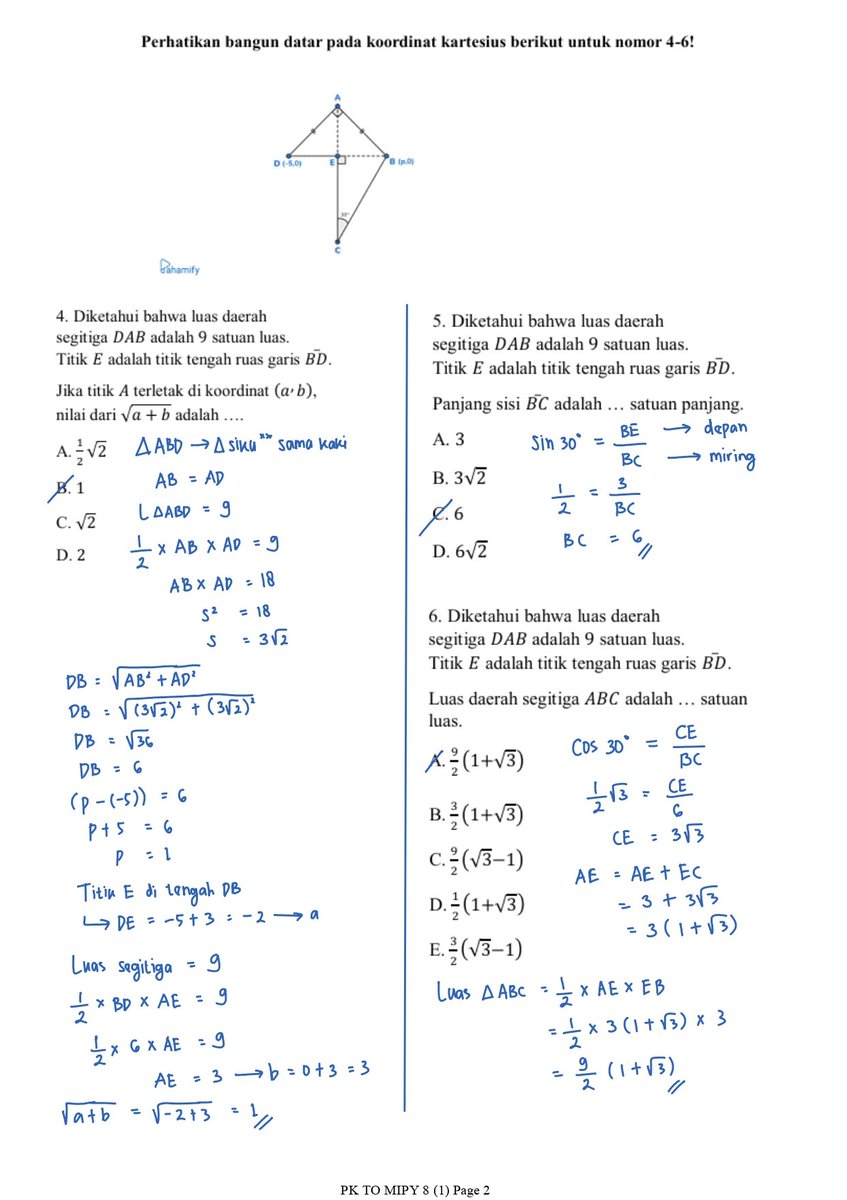 Perhatikan bangun datar pada koordinat kartesius berikut untuk nomor 4-6!
A
D (-5,0)
E
B (p,0)
30°
C
Pahamify
4. Diketahui bahwa luas daerah
segitiga DAB adalah 9 satuan luas.
Titik E adalah titik tengah ruas garis B̄D.
Jika titik A terletak di koordinat (a, b),
nilai dari √a + b adalah ….
A. 1/2 √2
B. 1
C. √2
D. 2
△ABD → △siku"" sama kaki
AB = AD
L△ABD = 9
1/2 × AB × AD = 9
AB × AD = 18
s² = 18
s = 3√2
DB = √AB² + AD²
DB = √(3√2)² + (3√2)²
DB = √36
DB = 6
(p-(-5)) = 6
p+5 = 6
p = 1
Titik E di tengah DB
↳ DE = -5+3 = -2 → a
Luas segitiga = 9
1/2 × BD × AE = 9
1/2 × 6 × AE = 9
AE = 3 → b = 0+3 = 3
√a+b = √-2+3 = 1 //
5. Diketahui bahwa luas daerah
segitiga DAB adalah 9 satuan luas.
Titik E adalah titik tengah ruas garis B̄D.
Panjang sisi B̄C adalah … satuan panjang.
A. 3
B. 3√2
C. 6
D. 6√2
Sin 30° = BE/BC → depan → miring
1/2 = 3/BC
BC = 6 //
6. Diketahui bahwa luas daerah
segitiga DAB adalah 9 satuan luas.
Titik E adalah titik tengah ruas garis B̄D.
Luas daerah segitiga ABC adalah … satuan
luas.
A. 9/2 (1+√3)
B. 3/2 (1+√3)
C. 9/2 (√3−1)
D. 1/2 (1+√3)
E. 3/2 (√3−1)
Cos 30° = CE/BC
1/2 √3 = CE/6
CE = 3√3
AE = AE + EC
= 3 + 3√3
= 3(1+√3)
Luas △ABC = 1/2 × AE × EB
= 1/2 × 3(1+√3) × 3
= 9/2 (1+√3) //
PK TO MIPY 8 (1) Page 2